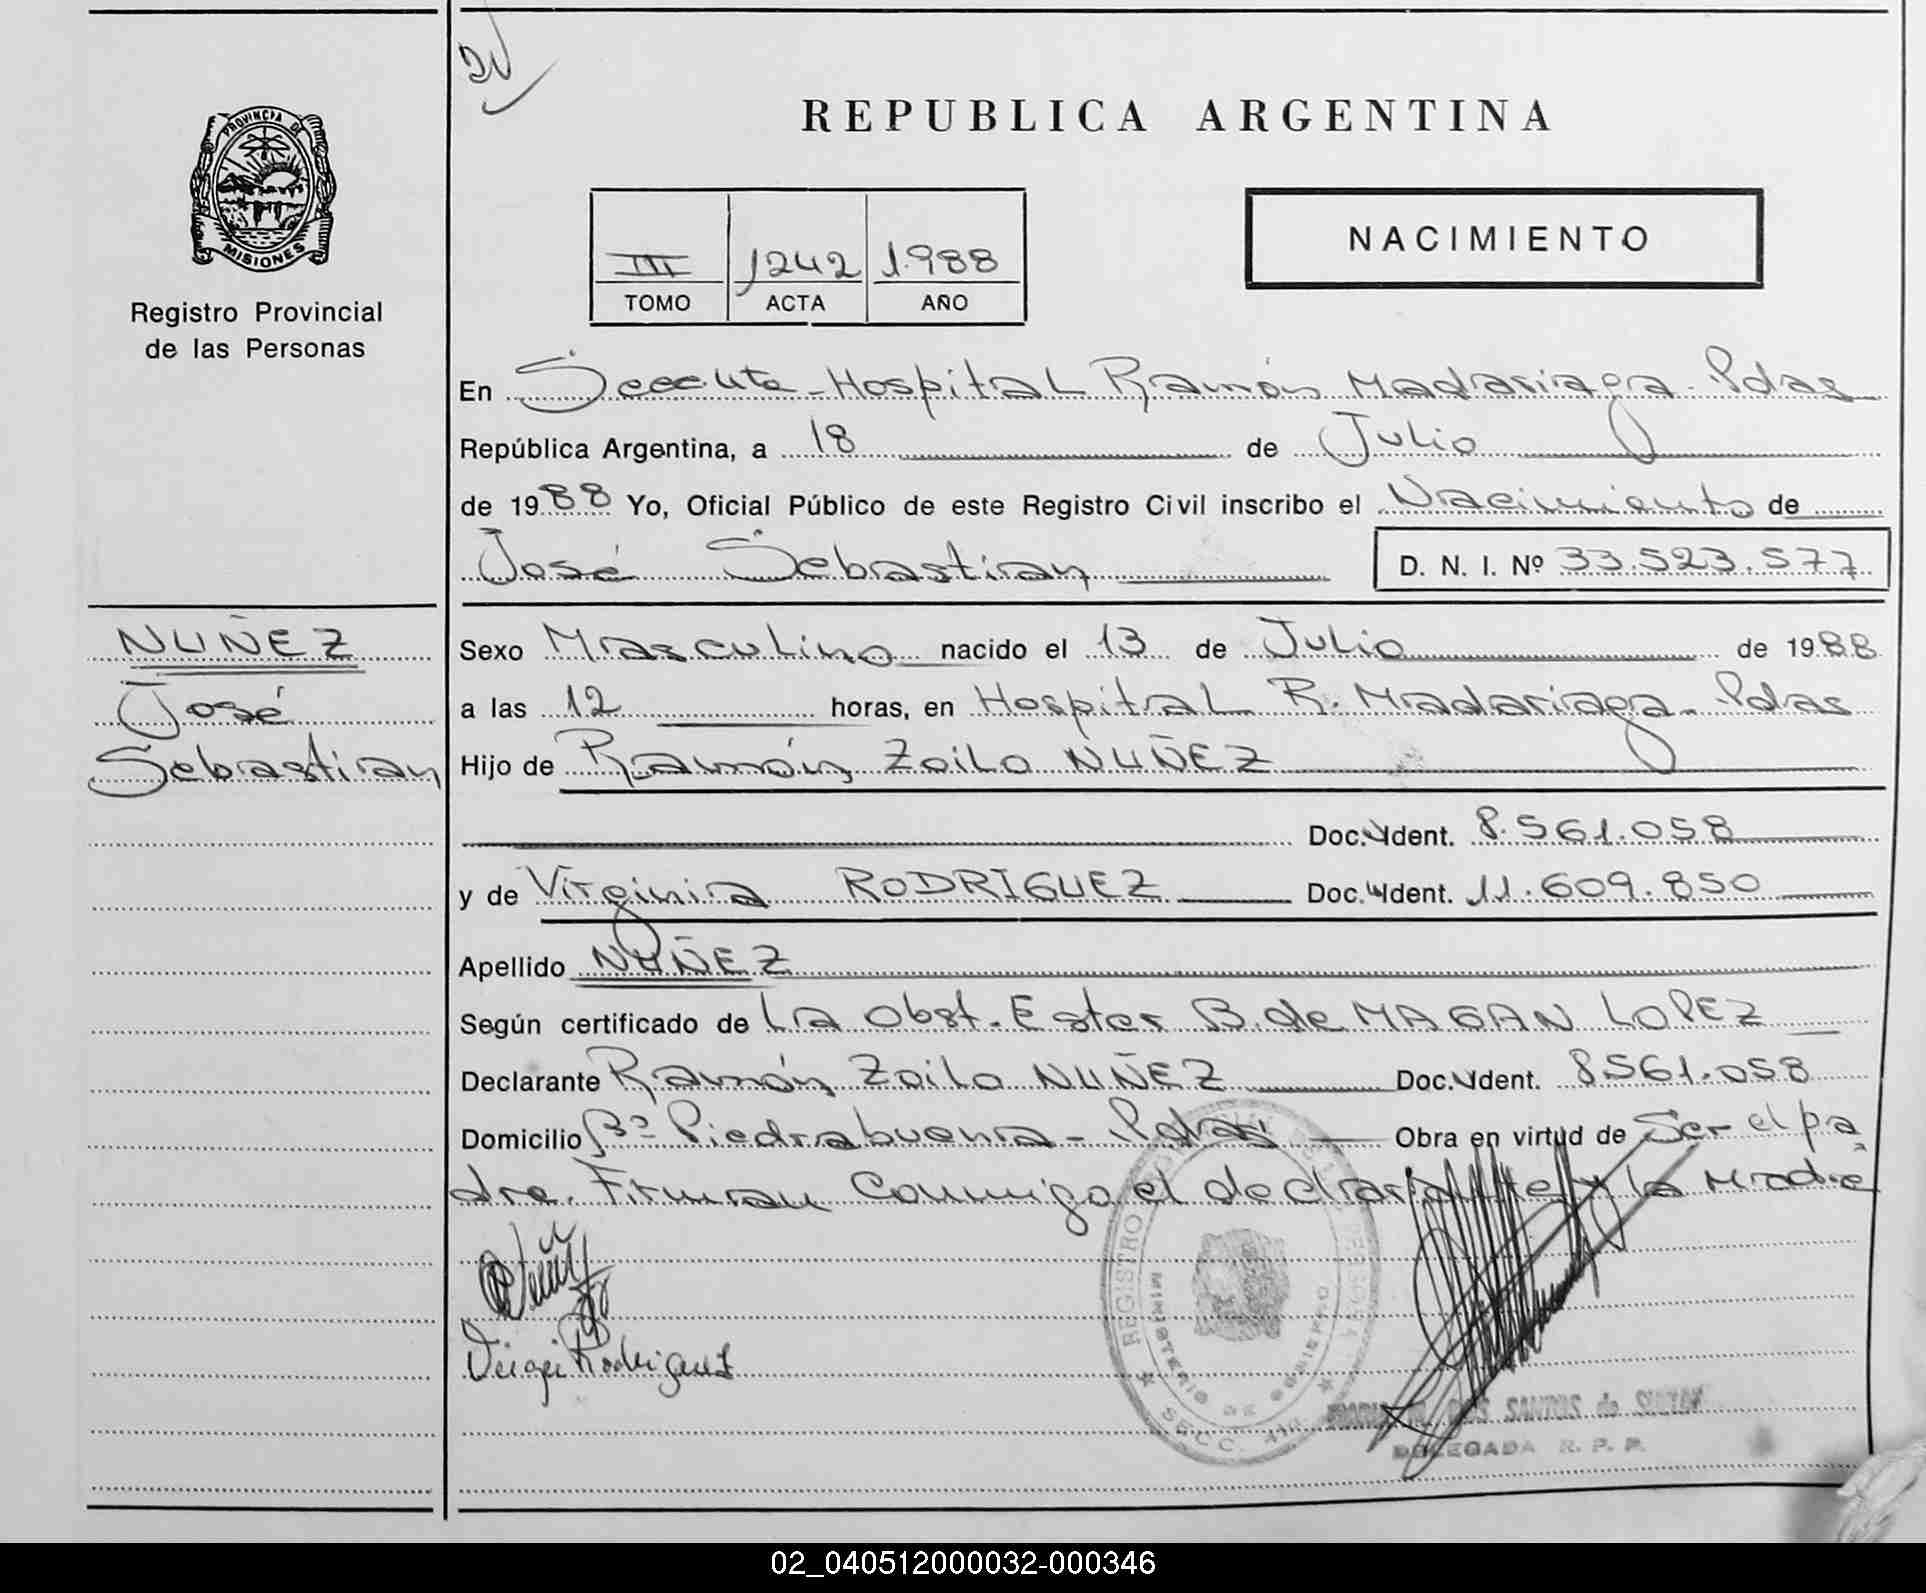 REPUBLICA ARGENTINA
PROVINCIA DE
MISIONES
Registro Provincial
de las Personas
III 1242 1.988
TOMO ACTA AÑO
NACIMIENTO
En Hospital Ramón Madariaga. Pdas
República Argentina, a 18 de Julio
de 1988 Yo, Oficial Público de este Registro Civil inscribo el Nacimiento de
José Sebastian
D. N. I. Nº 33.523.577
NUÑEZ
José
Sebastian
Sexo Masculino nacido el 13 de Julio de 1988
a las 12 horas, en Hospital R. Madariaga. Pdas
Hijo de Ramón Zoilo NUÑEZ
Doc. Ident. 8.561.058
y de Virginia RODRIGUEZ Doc. Ident. 11.609.850
Apellido NUÑEZ
Según certificado de La Obst. Ester B. de MAGAN LOPEZ
Declarante Ramón Zoilo NUÑEZ Doc. Ident. 8561.058
Domicilio Bº Piedrabuena - Pdas Obra en virtud de Ser el pa
dre. Firman Conmigo el declarante y la Madre
Rodriguez
REGISTRO
MINISTERIO DE GOBIERNO
SECC.
SANTOS de
DELEGADA R. P. P.
02_040512000032-000346